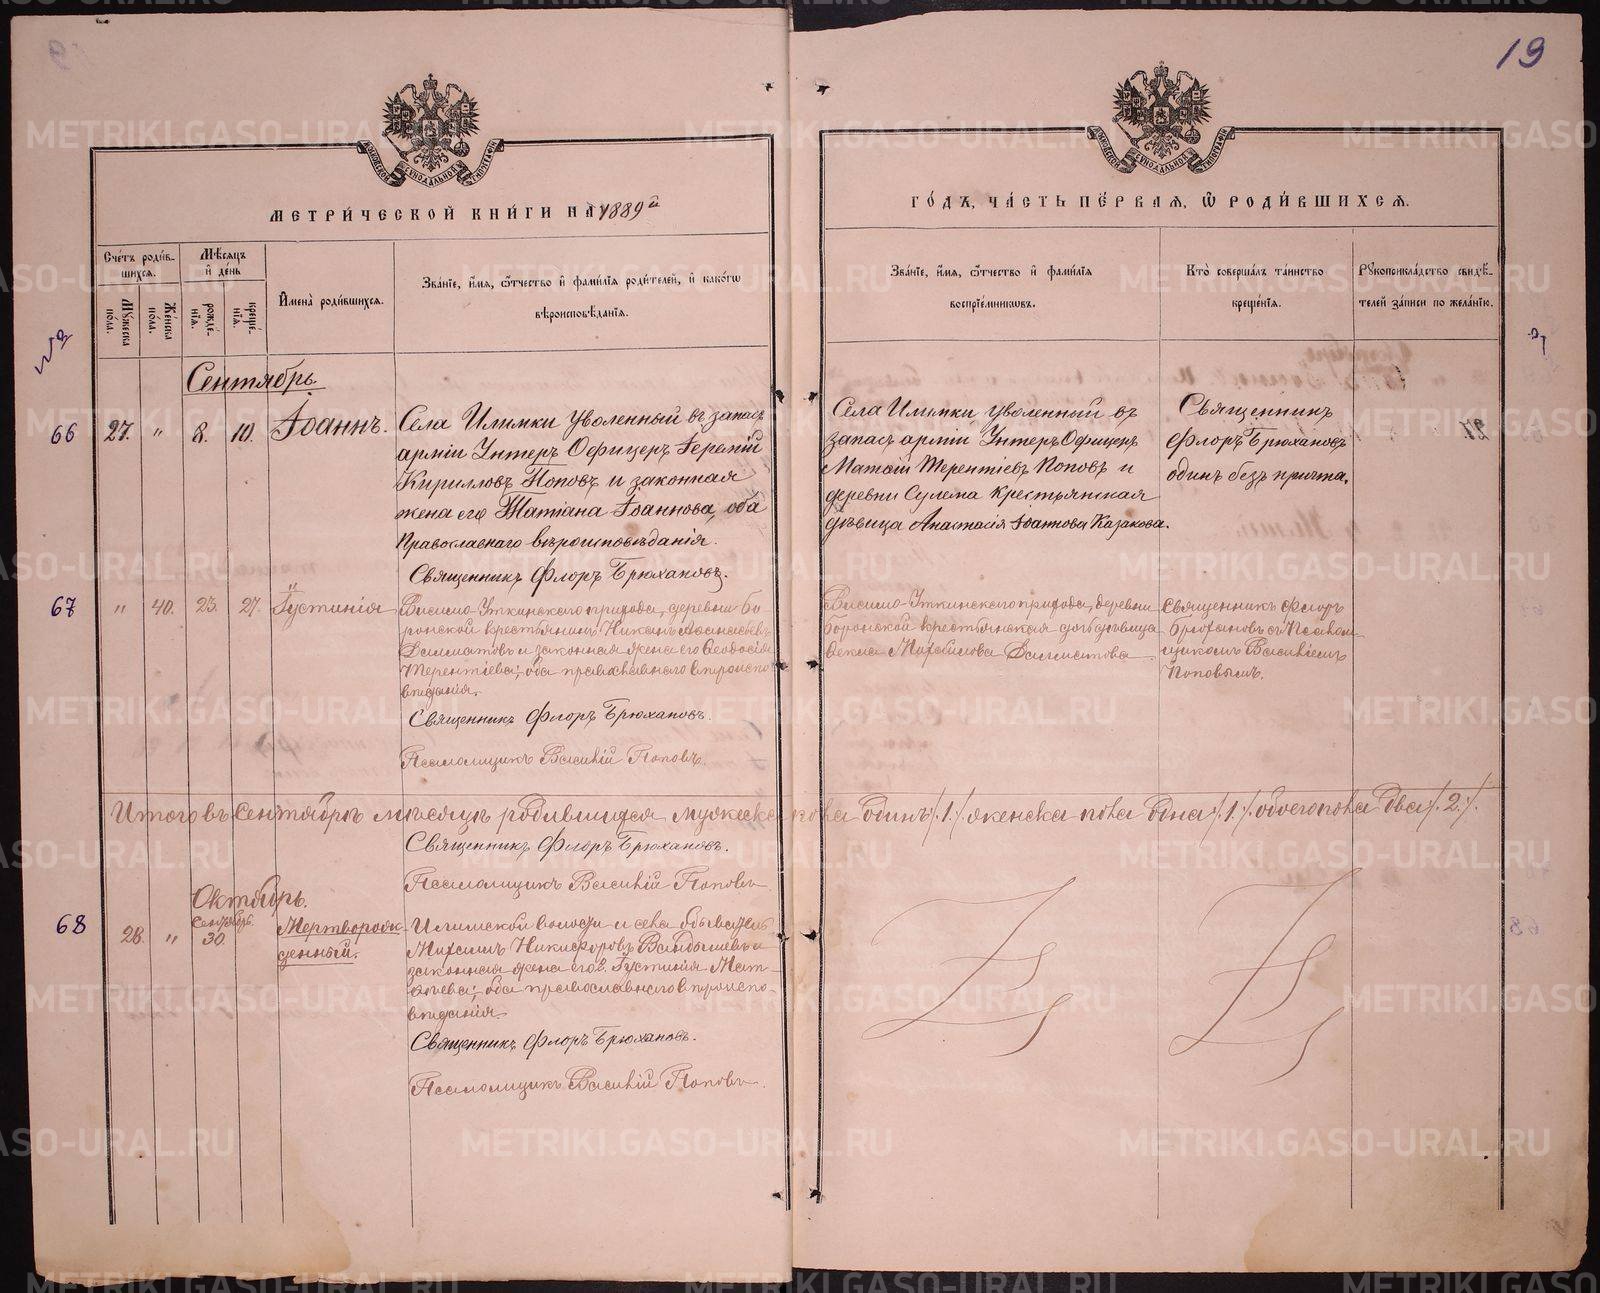 19
МЕТРИ́ЧЕСКОЙ КНИ́ГИ НА 1889й
ГО́ДЪ, ЧА́СТЬ ПЕ́РВАЯ, Ѿ РОДИ́ВШИХСЯ.
Сче́тъ роди́в-
шихся.
Му́жеска
по́ла.
Же́нска
по́ла.
Мѣ́сяцъ
и де́нь
рожде́-
нїя.
креще́-
нїя.
Имена̀ роди́вшихся.
Зва́нїе, и́мя, ѻ́тчество и фами́лїя роди́телей, и како́гѡ
вѣроисповѣ́данїя.
Зва́нїе, и́мя, ѻ́тчество и фами́лїя
воспрїе́мниковъ.
Кто̀ соверша́лъ та́инство
креще́нїя.
Рукоприкла́дство свидѣ́-
телей за́писи по жела́нїю.
Сентябрь.
66
27.
"
8.
10.
Іоаннъ.
Села Илимки уволенный въ запасъ
арміи Унтеръ Офицеръ Іеремій
Кирилловъ Поповъ и законная
жена его Татіана Іоаннова, оба
Православнаго вѣроисповѣданія.
Священникъ Флоръ Брюхановъ.
Села Илимки уволенный въ
запасъ арміи Унтеръ Офицеръ
Матѳій Терентіевъ Поповъ и
деревни Сулема крестьянская
дѣвица Анастасія Іоаннова Казакова.
Священникъ
Флоръ Брюхановъ
одинъ безъ причта.
67
"
40.
23.
27.
Іустинія
Висимо-Уткинскаго прихода, деревни Бо-
ронской крестьянинъ Никонъ Аѳанасьевъ
Далматовъ и законная жена его Ѳеодосія
Терентіева; оба православнаго вѣроиспо-
вѣданія.
Священникъ Флоръ Брюхановъ.
Псаломщикъ Василій Поповъ.
Висимо-Уткинскаго прихода, деревни
Боронской крестьянская дочь дѣвица
Ѳекла Михайлова Далматова
Священникъ Флоръ
Брюхановъ съ Псалом-
щикомъ Василіемъ
Поповымъ.
Итого въ Сентябрѣ мѣсяцѣ родившихся мужеска пола одинъ /.1./ женска пола одна /.1./ обоего пола два /.2./.
Священникъ Флоръ Брюхановъ.
Псаломщикъ Василій Поповъ
Октябрь.
68
28.
"
Сентябрь.
30.
Мертворож-
денный.
Илимской волости и села обыватель
Михаилъ Никифоровъ Вандышевъ и
законная жена его Іустинія Мат-
ѳѣева; оба православнаго вѣроиспо-
вѣданія.
Священникъ Флоръ Брюхановъ.
Псаломщикъ Василій Поповъ.